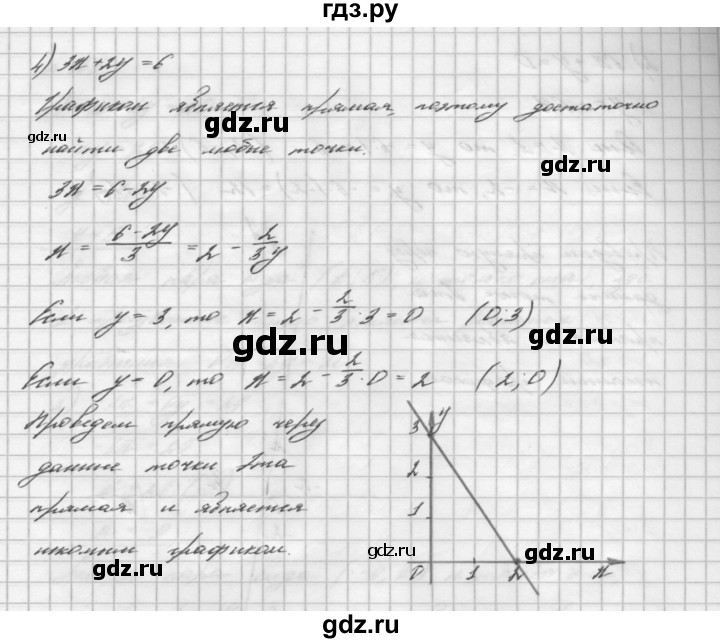 гдз.ру
4) 3x+2y=6
Графиком является прямая, поэтому достаточно
gdz.ru
gdz.ru
найти две любые точки.
gdz.ru
3x = 6-2y
x = \frac{6-2y}{3} = 2 - \frac{2}{3}y
Если y = 3, то x = 2 - \frac{2}{3} · 3 = 0 (0; 3)
gdz.ru
gdz.ru
Если y = 0, то x = 2 - \frac{2}{3} · 0 = 2 (2; 0)
Проведем прямую через
данные точки. Эта
прямая и является
искомым графиком.
y
3
2
1
0 1 2 x
gdz.ru
gdz.ru
gdz.ru
гдз.ру